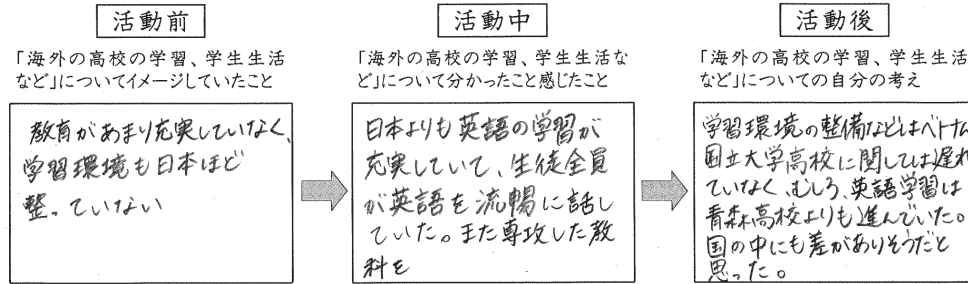 活動前
「海外の高校の学習、学生生活
など」についてイメージしていたこと
教育があまり充実していなく、
学習環境も日本ほど
整っていない
活動中
「海外の高校の学習、学生生活な
ど」について分かったこと感じたこと
日本よりも英語の学習が
充実していて、生徒全員
が英語を流暢に話し
ていた。また専攻した教
科を
活動後
「海外の高校の学習、学生生活
など」についての自分の考え
学習環境の整備などはベトナム
国立大学高校に関しては遅れ
ていなく、むしろ、英語学習は
青森高校よりも進んでいた。
国の中にも差がありそうだと
思った。